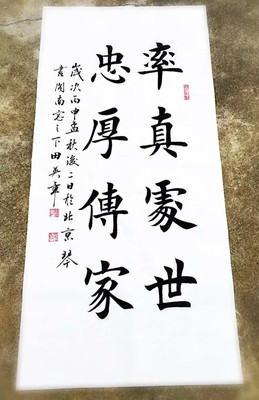 率真處世
忠厚傳家
歲次丙申孟秋後二日於北京琴
書閣南窓之下田英章